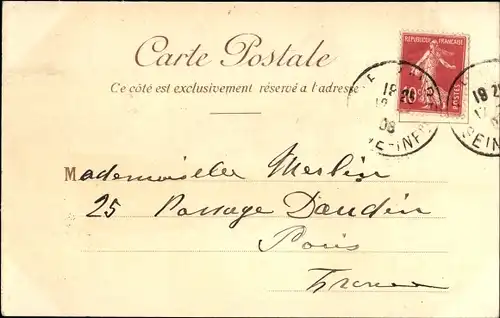 Carte Postale
Ce côté est exclusivement réservé a l'adresse
REPUBLIQUE FRANÇAISE
10
POSTES
18
08
NE-INFRE
18 25
SEINE
Mademoiselle Meslin
25 Passage Daudin
Paris
France